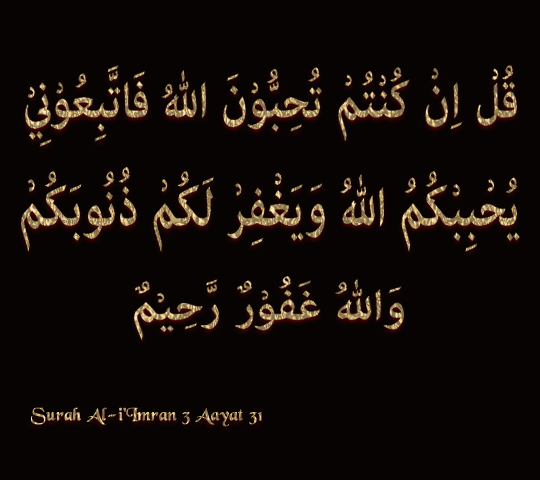 قُلْ اِنْ كُنْتُمْ تُحِبُّوْنَ اللهَ فَاتَّبِعُوْنِيْ
يُحْبِبْكُمُ اللهُ وَيَغْفِرْ لَكُمْ ذُنُوبَكُمْ
وَاللهُ غَفُوْرٌ رَّحِيْمٌ
Surah Al-i'Imran 3 Aayat 31